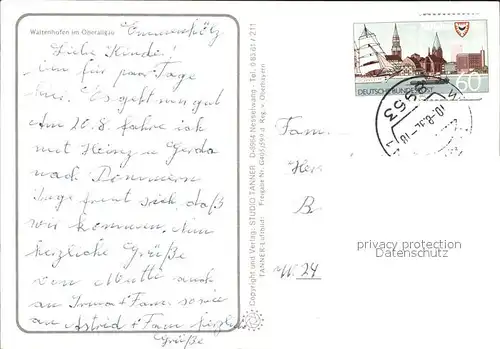 Waltenhofen im Oberallgäu
Liebe Kinder!
bin für paar Tage
hier. Es geht uns gut
Am 20.8. fahre ich
mit Heinz u Gerda
nach Pommern
Inge freut sich, daß
wir kommen. Nun
herzliche Grüße
von Mutti auch
an Irma + Fam. sowie
an Astrid + Fam herzliche
Grüße
Copyright und Verlag: STUDIO TANNER D-8964 Nesselwang - Tel. 0 83 61 / 211
TANNER-Luftbild Freigabe Nr. Reg. v. Oberbayern
DEUTSCHE BUNDESPOST
60
Fam.
Her
B
W 24
privacy protection
Datenschutz